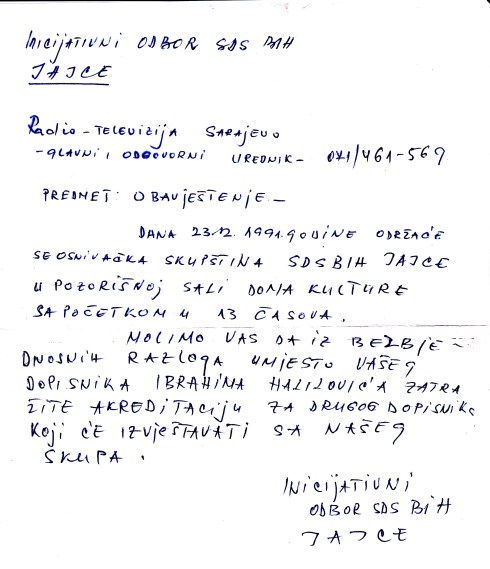 INICIJATIVNI ODBOR SDS BIH
JAJCE
Radio-TELEVIZIJA SARAJEVO
-GLAVNI I ODGOVORNI UREDNIK- 071/461-569
PREDMET: OBAVJEŠTENJE-
DANA 23.12.1991.GODINE ODRŽAĆE
SE OSNIVAČKA SKUPŠTINA SDS BIH JAJCE
U POZORIŠNOJ SALI DOMA KULTURE
SA POČETKOM U 13 ČASOVA.
MOLIMO VAS DA IZ BEZBJE-
DNOSNIH RAZLOGA UMJESTO VAŠEG
DOPISNIKA IBRAHIMA HALILOVIĆA ZATRA
ŽITE AKREDITACIJU ZA DRUGOG DOPISNIKA
KOJI ĆE IZVJEŠTAVATI SA NAŠEG
SKUPA.
INICIJATIVNI
ODBOR SDS BIH
JAJCE